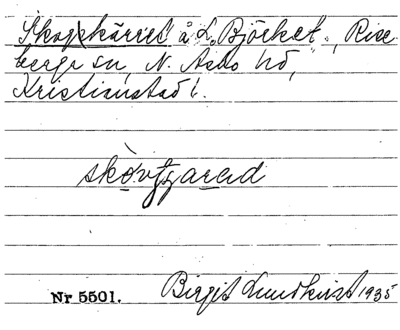 Skogskärret å L. Björket, Rise-
berga sn, N. Åsbo hd,
Kristianstad l.
Nr 5501. Birgit Lundkvist 1935